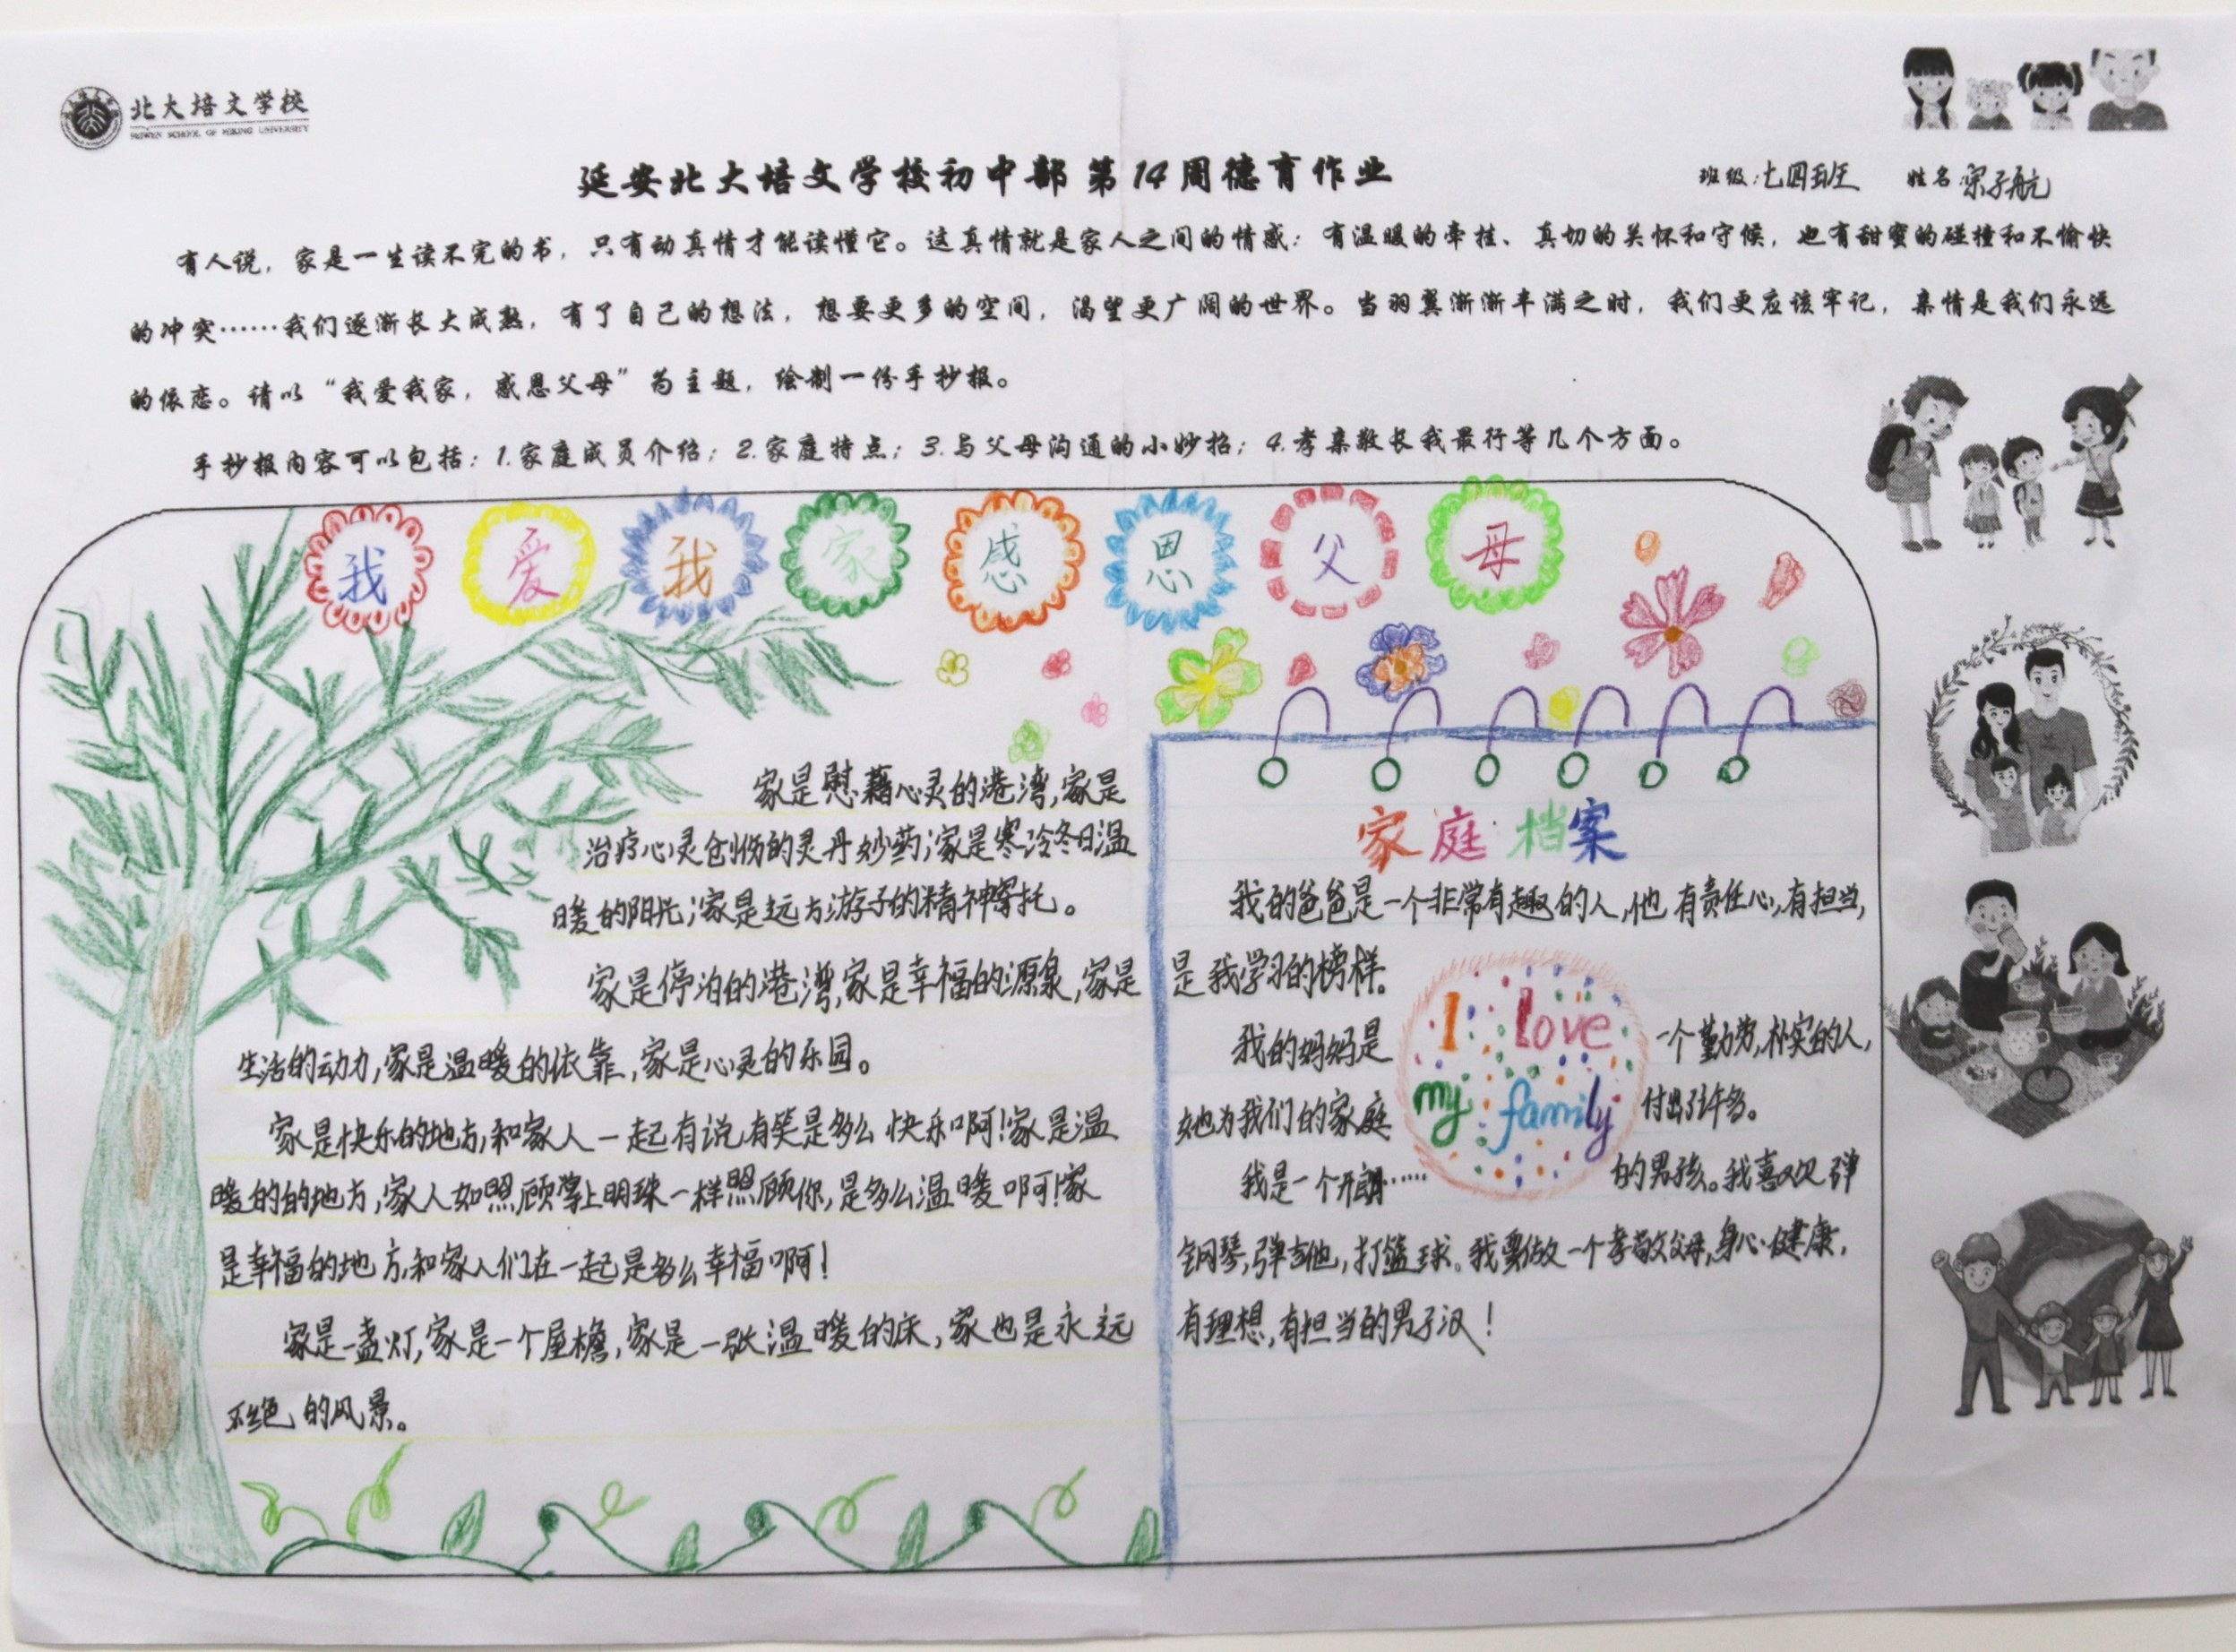 北大培文学校
PEIWEN SCHOOL OF PEKING UNIVERSITY
延安北大培文学校初中部第14周德育作业
班级:七四班 姓名:宗子航
有人说，家是一生读不完的书，只有动真情才能读懂它。这真情就是家人之间的情感：有温暖的牵挂、真切的关怀和守候，也有甜蜜的碰撞和不愉快
的冲突……我们逐渐长大成熟，有了自己的想法，想要更多的空间，渴望更广阔的世界。当羽翼渐渐丰满之时，我们更应该牢记，亲情是我们永远
的依恋。请以“我爱我家，感恩父母”为主题，绘制一份手抄报。
手抄报内容可以包括：1.家庭成员介绍；2.家庭特点；3.与父母沟通的小妙招；4.孝亲敬长我最行等几个方面。
我爱我家感恩父母
家是慰藉心灵的港湾,家是
治疗心灵创伤的灵丹妙药;家是寒冷冬日温
暖的阳光;家是远方游子的精神寄托。
家是停泊的港湾,家是幸福的源泉,家是
生活的动力,家是温暖的依靠,家是心灵的乐园。
家是快乐的地方,和家人一起有说有笑是多么快乐啊!家是温
暖的的地方,家人如照顾掌上明珠一样照顾你,是多么温暖啊!家
是幸福的地方,和家人们在一起是多么幸福啊!
家是一盏灯,家是一个屋檐,家是一张温暖的床,家也是永远
不绝的风景。
家庭档案
我的爸爸是一个非常有趣的人,他有责任心,有担当,
是我学习的榜样。
我的妈妈是一个勤劳,朴实的人,
她为我们的家庭付出了许多。
我是一个开朗……的男孩。我喜欢弹
钢琴,弹吉他,打篮球。我要做一个孝敬父母,身心健康,
有理想,有担当的男子汉!
I love
my family